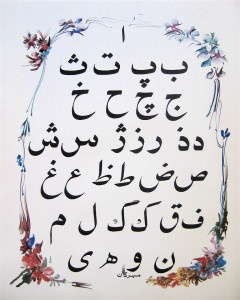 ا
ب پ ت ث
ج چ ح خ
د ذ ر ز ژ س ش
ص ض ط ظ ع غ
ف ق ک گ ل م
ن و ه ی